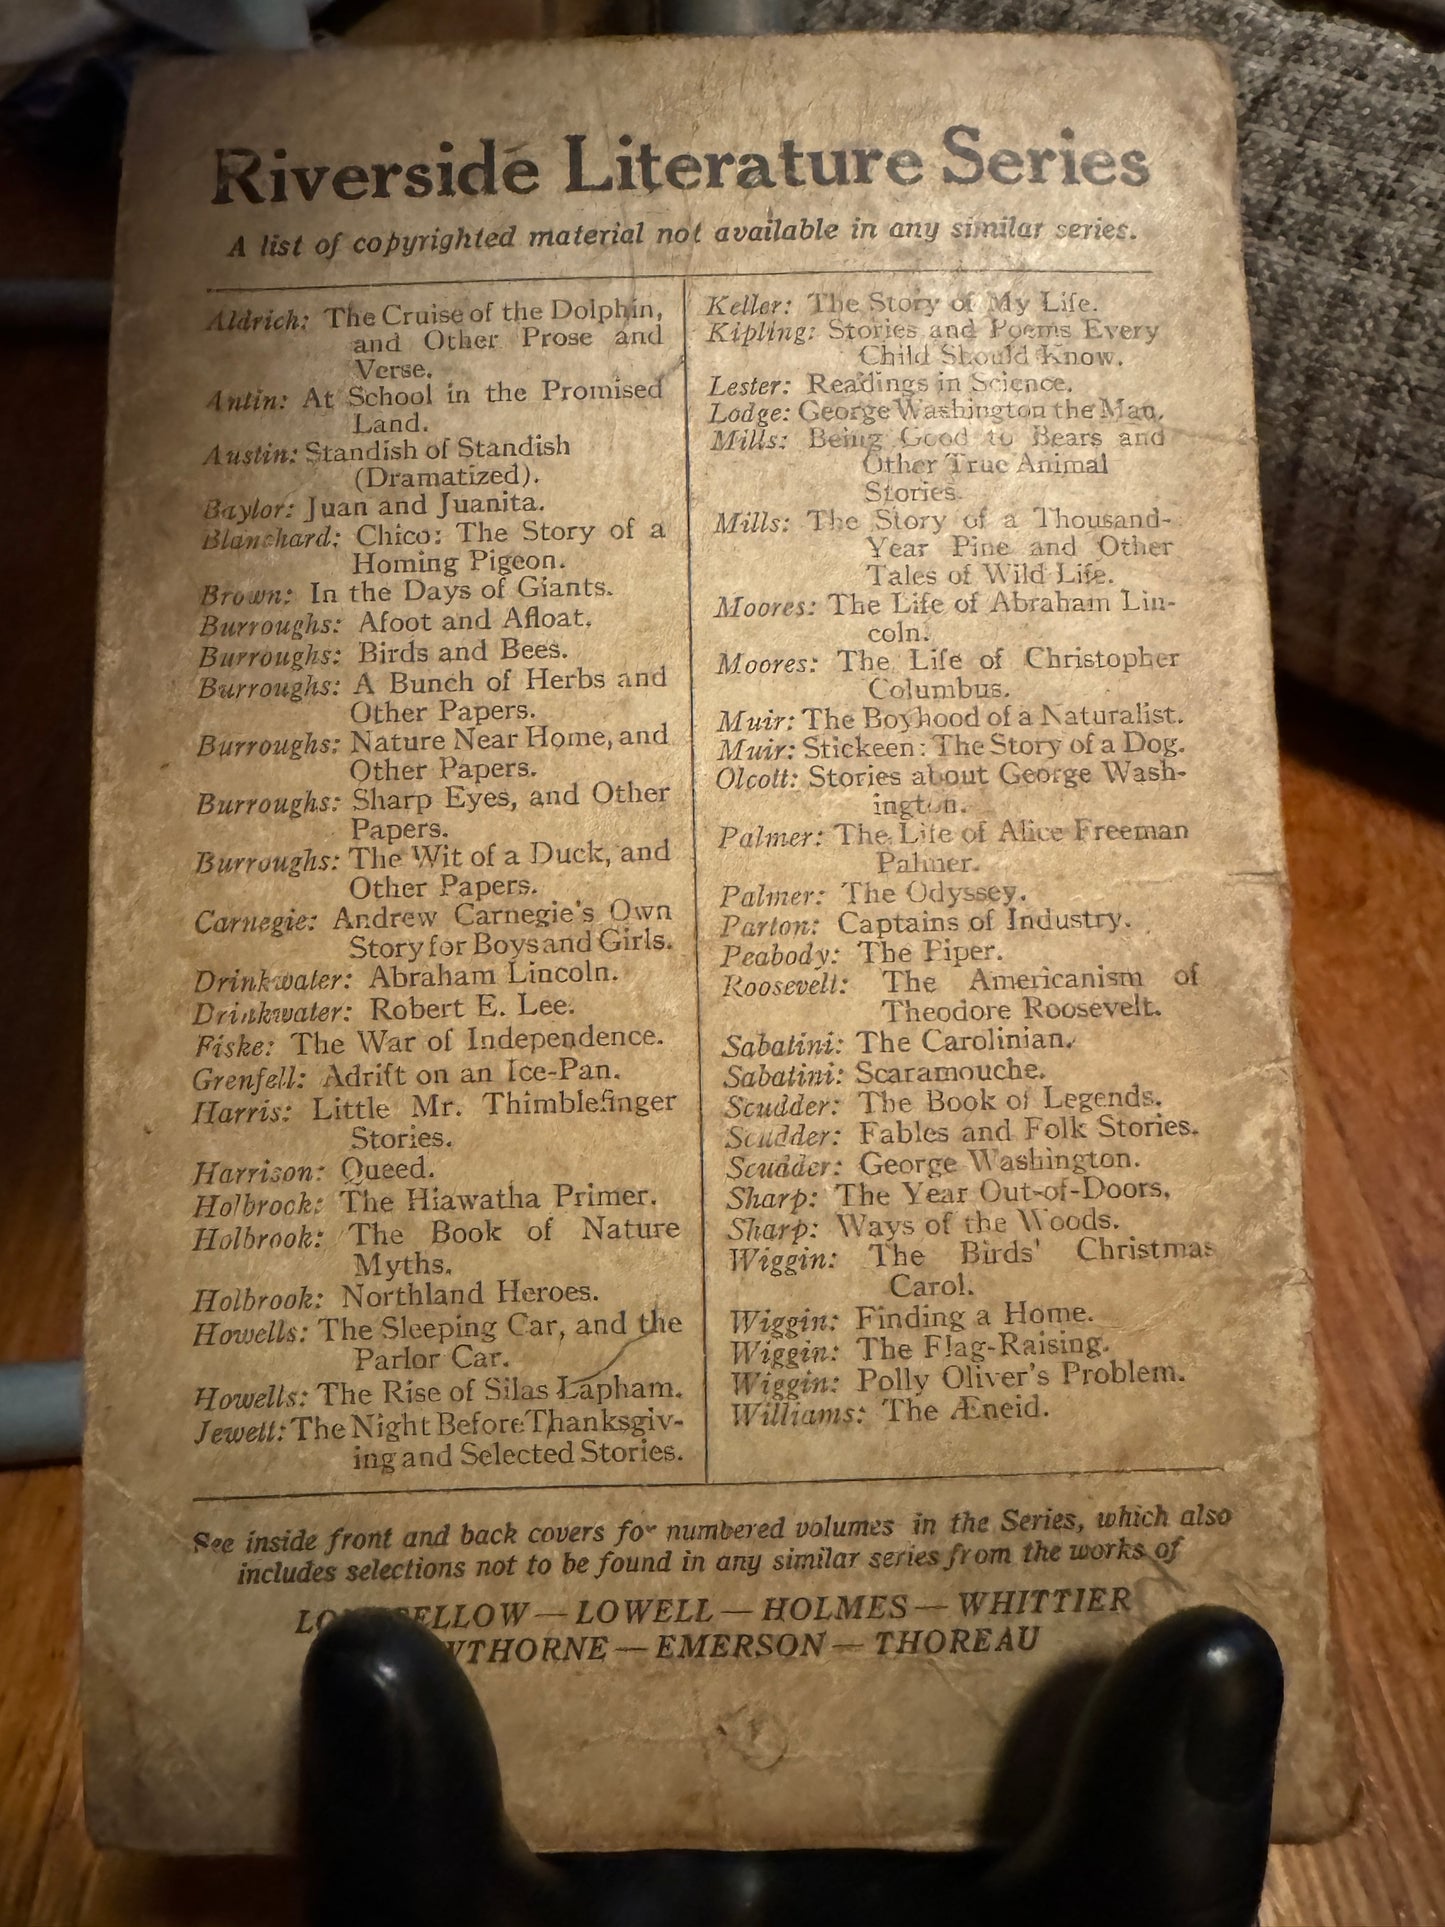 Riverside Literature Series
A list of copyrighted material not available in any similar series.
Aldrich: The Cruise of the Dolphin,
and Other Prose and
Verse.
Antin: At School in the Promised
Land.
Austin: Standish of Standish
(Dramatized).
Baylor: Juan and Juanita.
Blanchard: Chico: The Story of a
Homing Pigeon.
Brown: In the Days of Giants.
Burroughs: Afoot and Afloat.
Burroughs: Birds and Bees.
Burroughs: A Bunch of Herbs and
Other Papers.
Burroughs: Nature Near Home, and
Other Papers.
Burroughs: Sharp Eyes, and Other
Papers.
Burroughs: The Wit of a Duck, and
Other Papers.
Carnegie: Andrew Carnegie's Own
Story for Boys and Girls.
Drinkwater: Abraham Lincoln.
Drinkwater: Robert E. Lee.
Fiske: The War of Independence.
Grenfell: Adrift on an Ice-Pan.
Harris: Little Mr. Thimblefinger
Stories.
Harrison: Queed.
Holbrook: The Hiawatha Primer.
Holbrook: The Book of Nature
Myths.
Holbrook: Northland Heroes.
Howells: The Sleeping Car, and the
Parlor Car.
Howells: The Rise of Silas Lapham.
Jewett: The Night Before Thanksgiv-
ing and Selected Stories.
Keller: The Story of My Life.
Kipling: Stories and Poems Every
Child Should Know.
Lester: Readings in Science.
Lodge: George Washington the Man.
Mills: Being Good to Bears and
Other True Animal
Stories.
Mills: The Story of a Thousand-
Year Pine and Other
Tales of Wild Life.
Moores: The Life of Abraham Lin-
coln.
Moores: The Life of Christopher
Columbus.
Muir: The Boyhood of a Naturalist.
Muir: Stickeen: The Story of a Dog.
Olcott: Stories about George Wash-
ington.
Palmer: The Life of Alice Freeman
Palmer.
Palmer: The Odyssey.
Parton: Captains of Industry.
Peabody: The Piper.
Roosevelt: The Americanism of
Theodore Roosevelt.
Sabatini: The Carolinian.
Sabatini: Scaramouche.
Scudder: The Book of Legends.
Scudder: Fables and Folk Stories.
Scudder: George Washington.
Sharp: The Year Out-of-Doors.
Sharp: Ways of the Woods.
Wiggin: The Birds' Christmas
Carol.
Wiggin: Finding a Home.
Wiggin: The Flag-Raising.
Wiggin: Polly Oliver's Problem.
Williams: The Æneid.
See inside front and back covers for numbered volumes in the Series, which also
includes selections not to be found in any similar series from the works of
LOWELL — HOLMES — WHITTIER
EMERSON — THOREAU